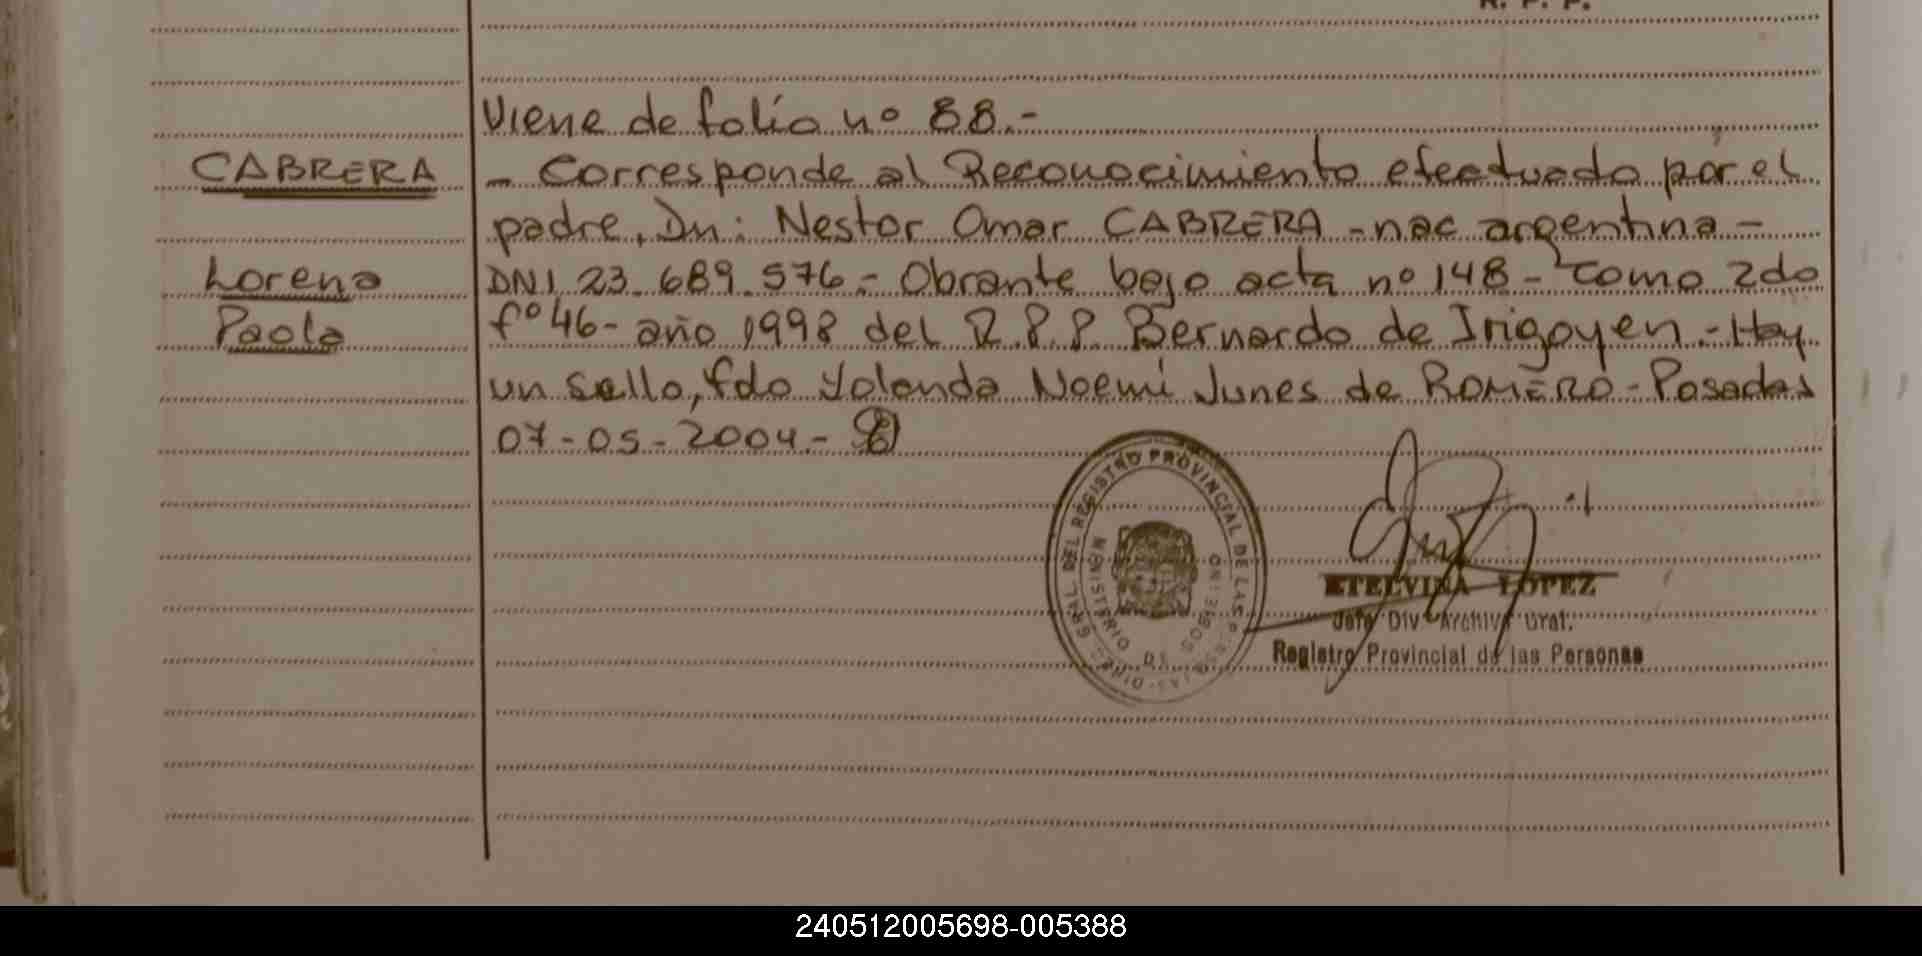 R. P. P.
Viene de folio nº 88.-
CABRERA
- Corresponde al Reconocimiento efectuado por el
padre, Dn: Nestor Omar CABRERA - nac argentina -
Lorena
DNI 23.689.576 - Obrante bajo acta nº 148 - Tomo 2do
Paola
fº 46 - año 1998 del R.P.P. Bernardo de Irigoyen - Hay
un sello, fdo Yolanda Noemi Junes de ROMERO - Posadas
07-05-2004.-
GRAL. DEL REGISTRO PROVINCIAL DE LAS PERSONAS - DIREC.
MINISTERIO DE GOBIERNO
ETELVINA LOPEZ
Jefe Div. Archivo Gral.
Registro Provincial de las Personas
240512005698-005388